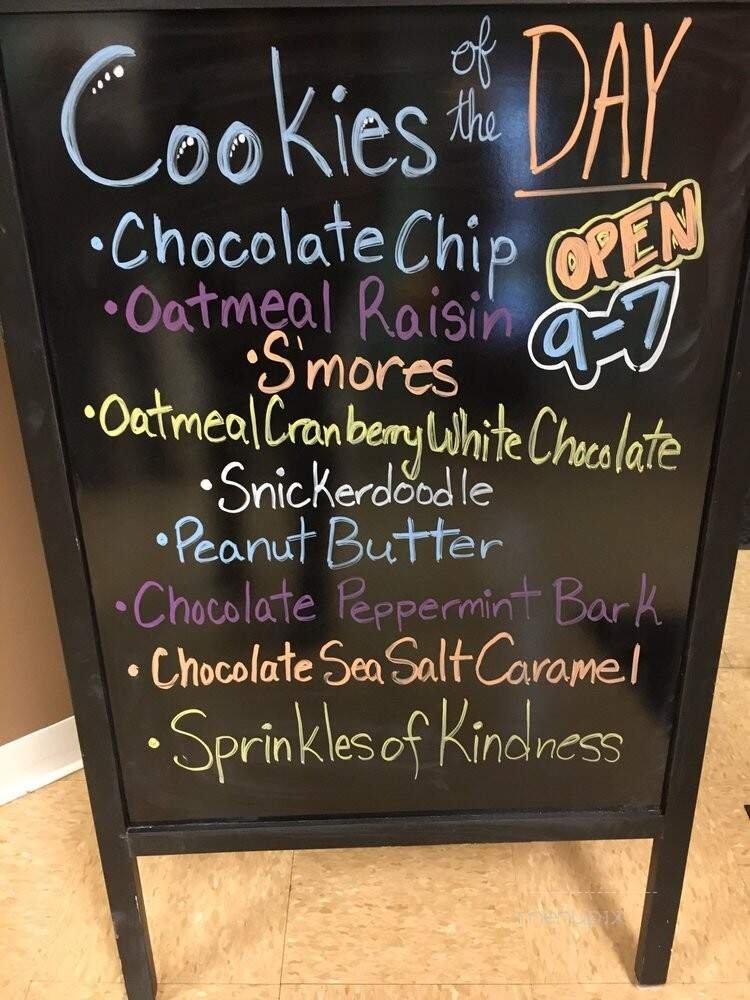 Cookies of the DAY
• Chocolate Chip
OPEN
9-7
• Oatmeal Raisin
• S'mores
• Oatmeal Cranberry White Chocolate
• Snickerdoodle
• Peanut Butter
• Chocolate Peppermint Bark
• Chocolate Sea Salt Caramel
• Sprinkles of Kindness
menupix